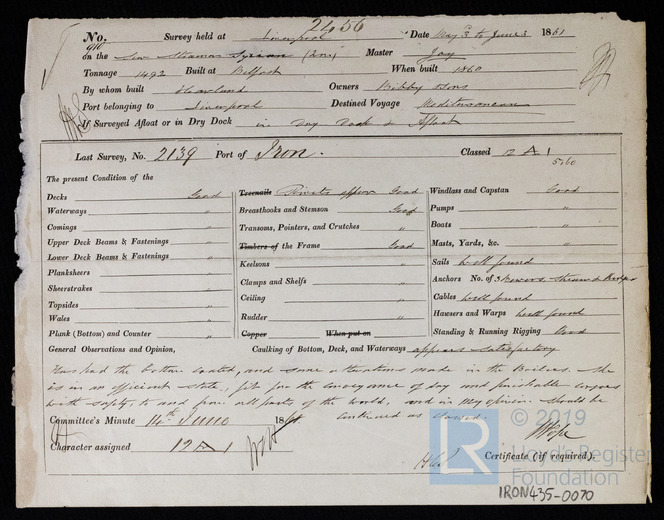 2456
No. Survey held at Liverpool Date May 3 to June 3 1861
on the Screw Steamer Syrian (Iron) Master Joy
Tonnage 1492 Built at Belfast When built 1860
By whom built Harland Owners Bibby Sons
Port belonging to Liverpool Destined Voyage Mediterranean
If Surveyed Afloat or in Dry Dock in Dry Dock & Afloat
Last Survey, No. 2139 Port of Iron. Classed 12 A 1
5.60
The present Condition of the
Decks Good Treenails Rivets appear Good Windlass and Capstan Good
Waterways " Breasthooks and Stemson Good Pumps "
Comings " Transoms, Pointers, and Crutches " Boats "
Upper Deck Beams & Fastenings " Timbers of the Frame Good Masts, Yards, &c. "
Lower Deck Beams & Fastenings " Keelsons Sails well found
Planksheers Clamps and Shelfs " Anchors No. of 3 Bowers Stream & Kedges
Sheerstrakes " Ceiling " Cables well found
Topsides " Rudder " Hawsers and Warps well found
Wales " Copper When put on Standing & Running Rigging Good
Plank (Bottom) and Counter "
General Observations and Opinion, Caulking of Bottom, Deck, and Waterways appears satisfactory
Has had the bottom coated, and some alterations made in the Boilers. She
is in an efficient state, fit for the conveyance of dry and perishable cargoes
with safety, to and from all parts of the world, and in my opinion should be
continued as classed.
Committee's Minute 14th June 186
Character assigned 12 A 1
Certificate (if required).
LR
© 2019
Lloyd's Register
Foundation
IRON435-0070